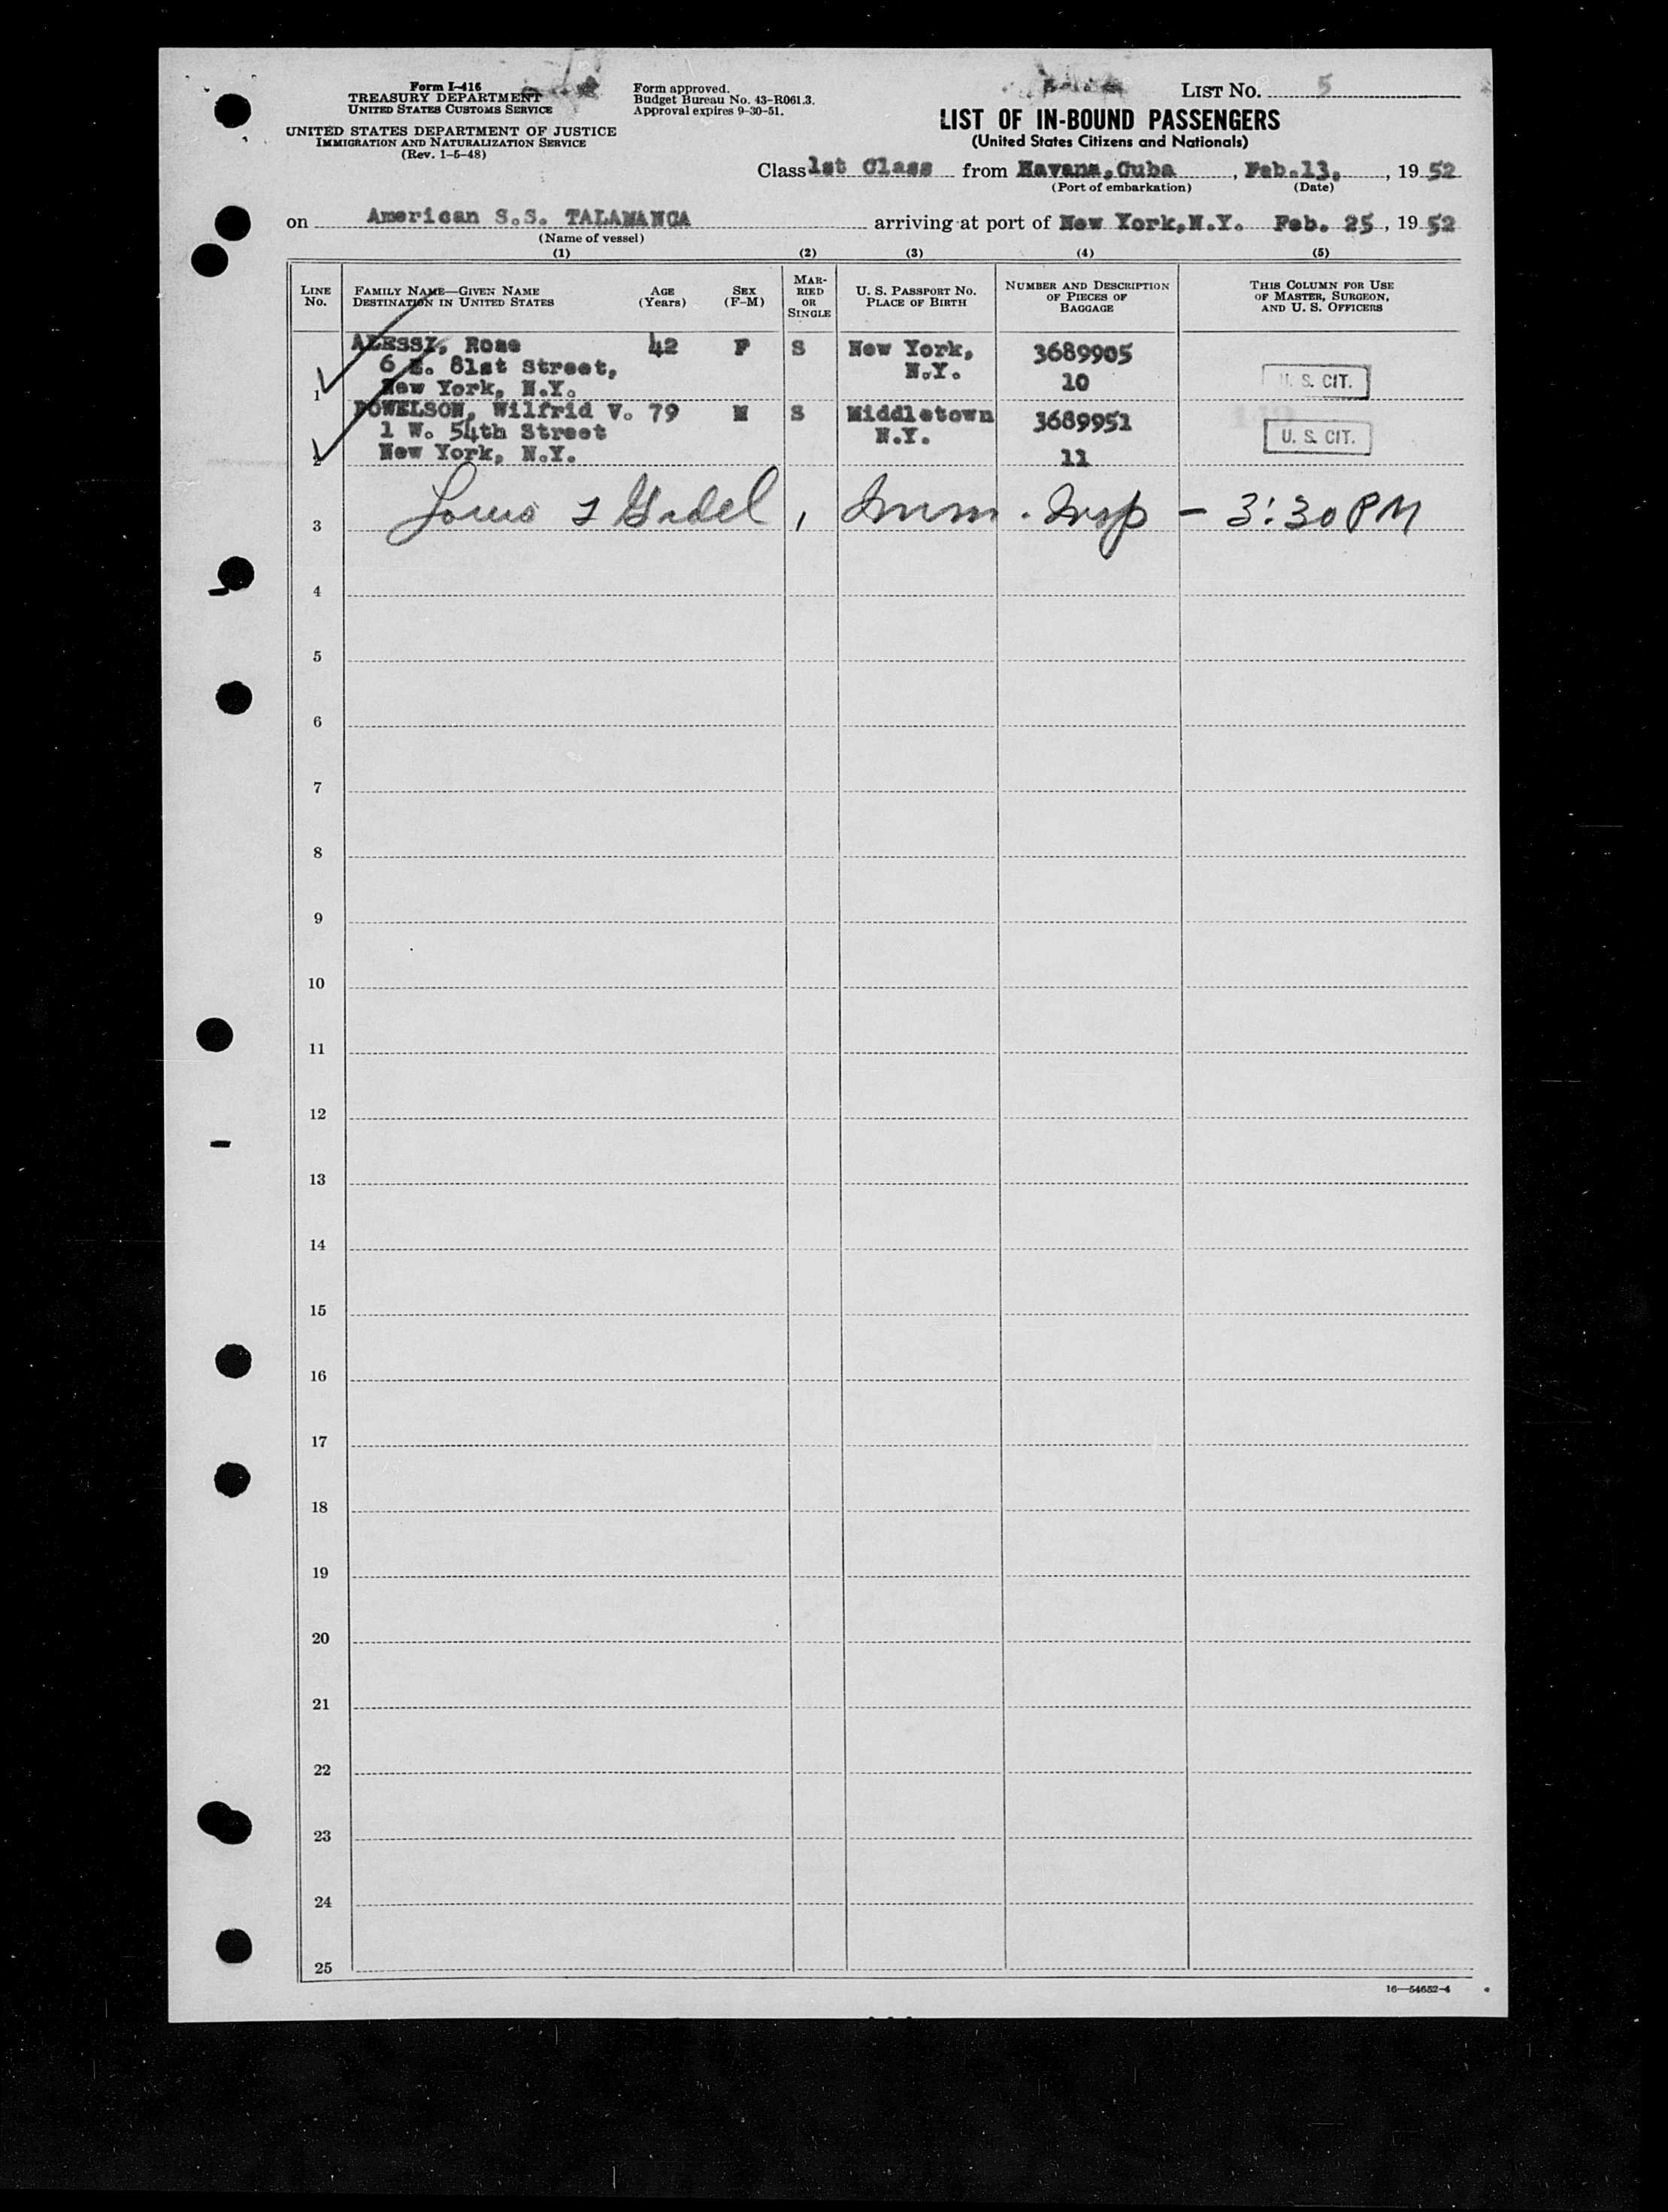 Form I-416
TREASURY DEPARTMENT
UNITED STATES CUSTOMS SERVICE
UNITED STATES DEPARTMENT OF JUSTICE
IMMIGRATION AND NATURALIZATION SERVICE
(Rev. 1-5-48)
Form approved.
Budget Bureau No. 43-R061.3.
Approval expires 9-30-51.
LIST No. 5
LIST OF IN-BOUND PASSENGERS
(United States Citizens and Nationals)
Class 1st Class from Havana, Cuba, Feb. 13, 19 52
(Port of embarkation) (Date)
on American S.S. TALAMANCA arriving at port of New York, N.Y. Feb. 25, 19 52
(Name of vessel)
(1) (2) (3) (4) (5)
LINE No. FAMILY NAME—GIVEN NAME DESTINATION IN UNITED STATES AGE (Years) SEX (F-M) MARRIED OR SINGLE U. S. PASSPORT No. PLACE OF BIRTH NUMBER AND DESCRIPTION OF PIECES OF BAGGAGE THIS COLUMN FOR USE OF MASTER, SURGEON, AND U. S. OFFICERS
ALESSI, Rose 42 F S New York, 3689905
6 E. 81st Street, N.Y.
1 New York, N.Y. 10 U. S. CIT.
POWELSON, Wilfrid V. 79 M S Middletown 3689951
1 W. 54th Street N.Y. U. S. CIT.
2 New York, N.Y. 11
3 Louis, Imm. Insp - 3:30 PM
4
5
6
7
8
9
10
11
12
13
14
15
16
17
18
19
20
21
22
23
24
25
16—54652-4